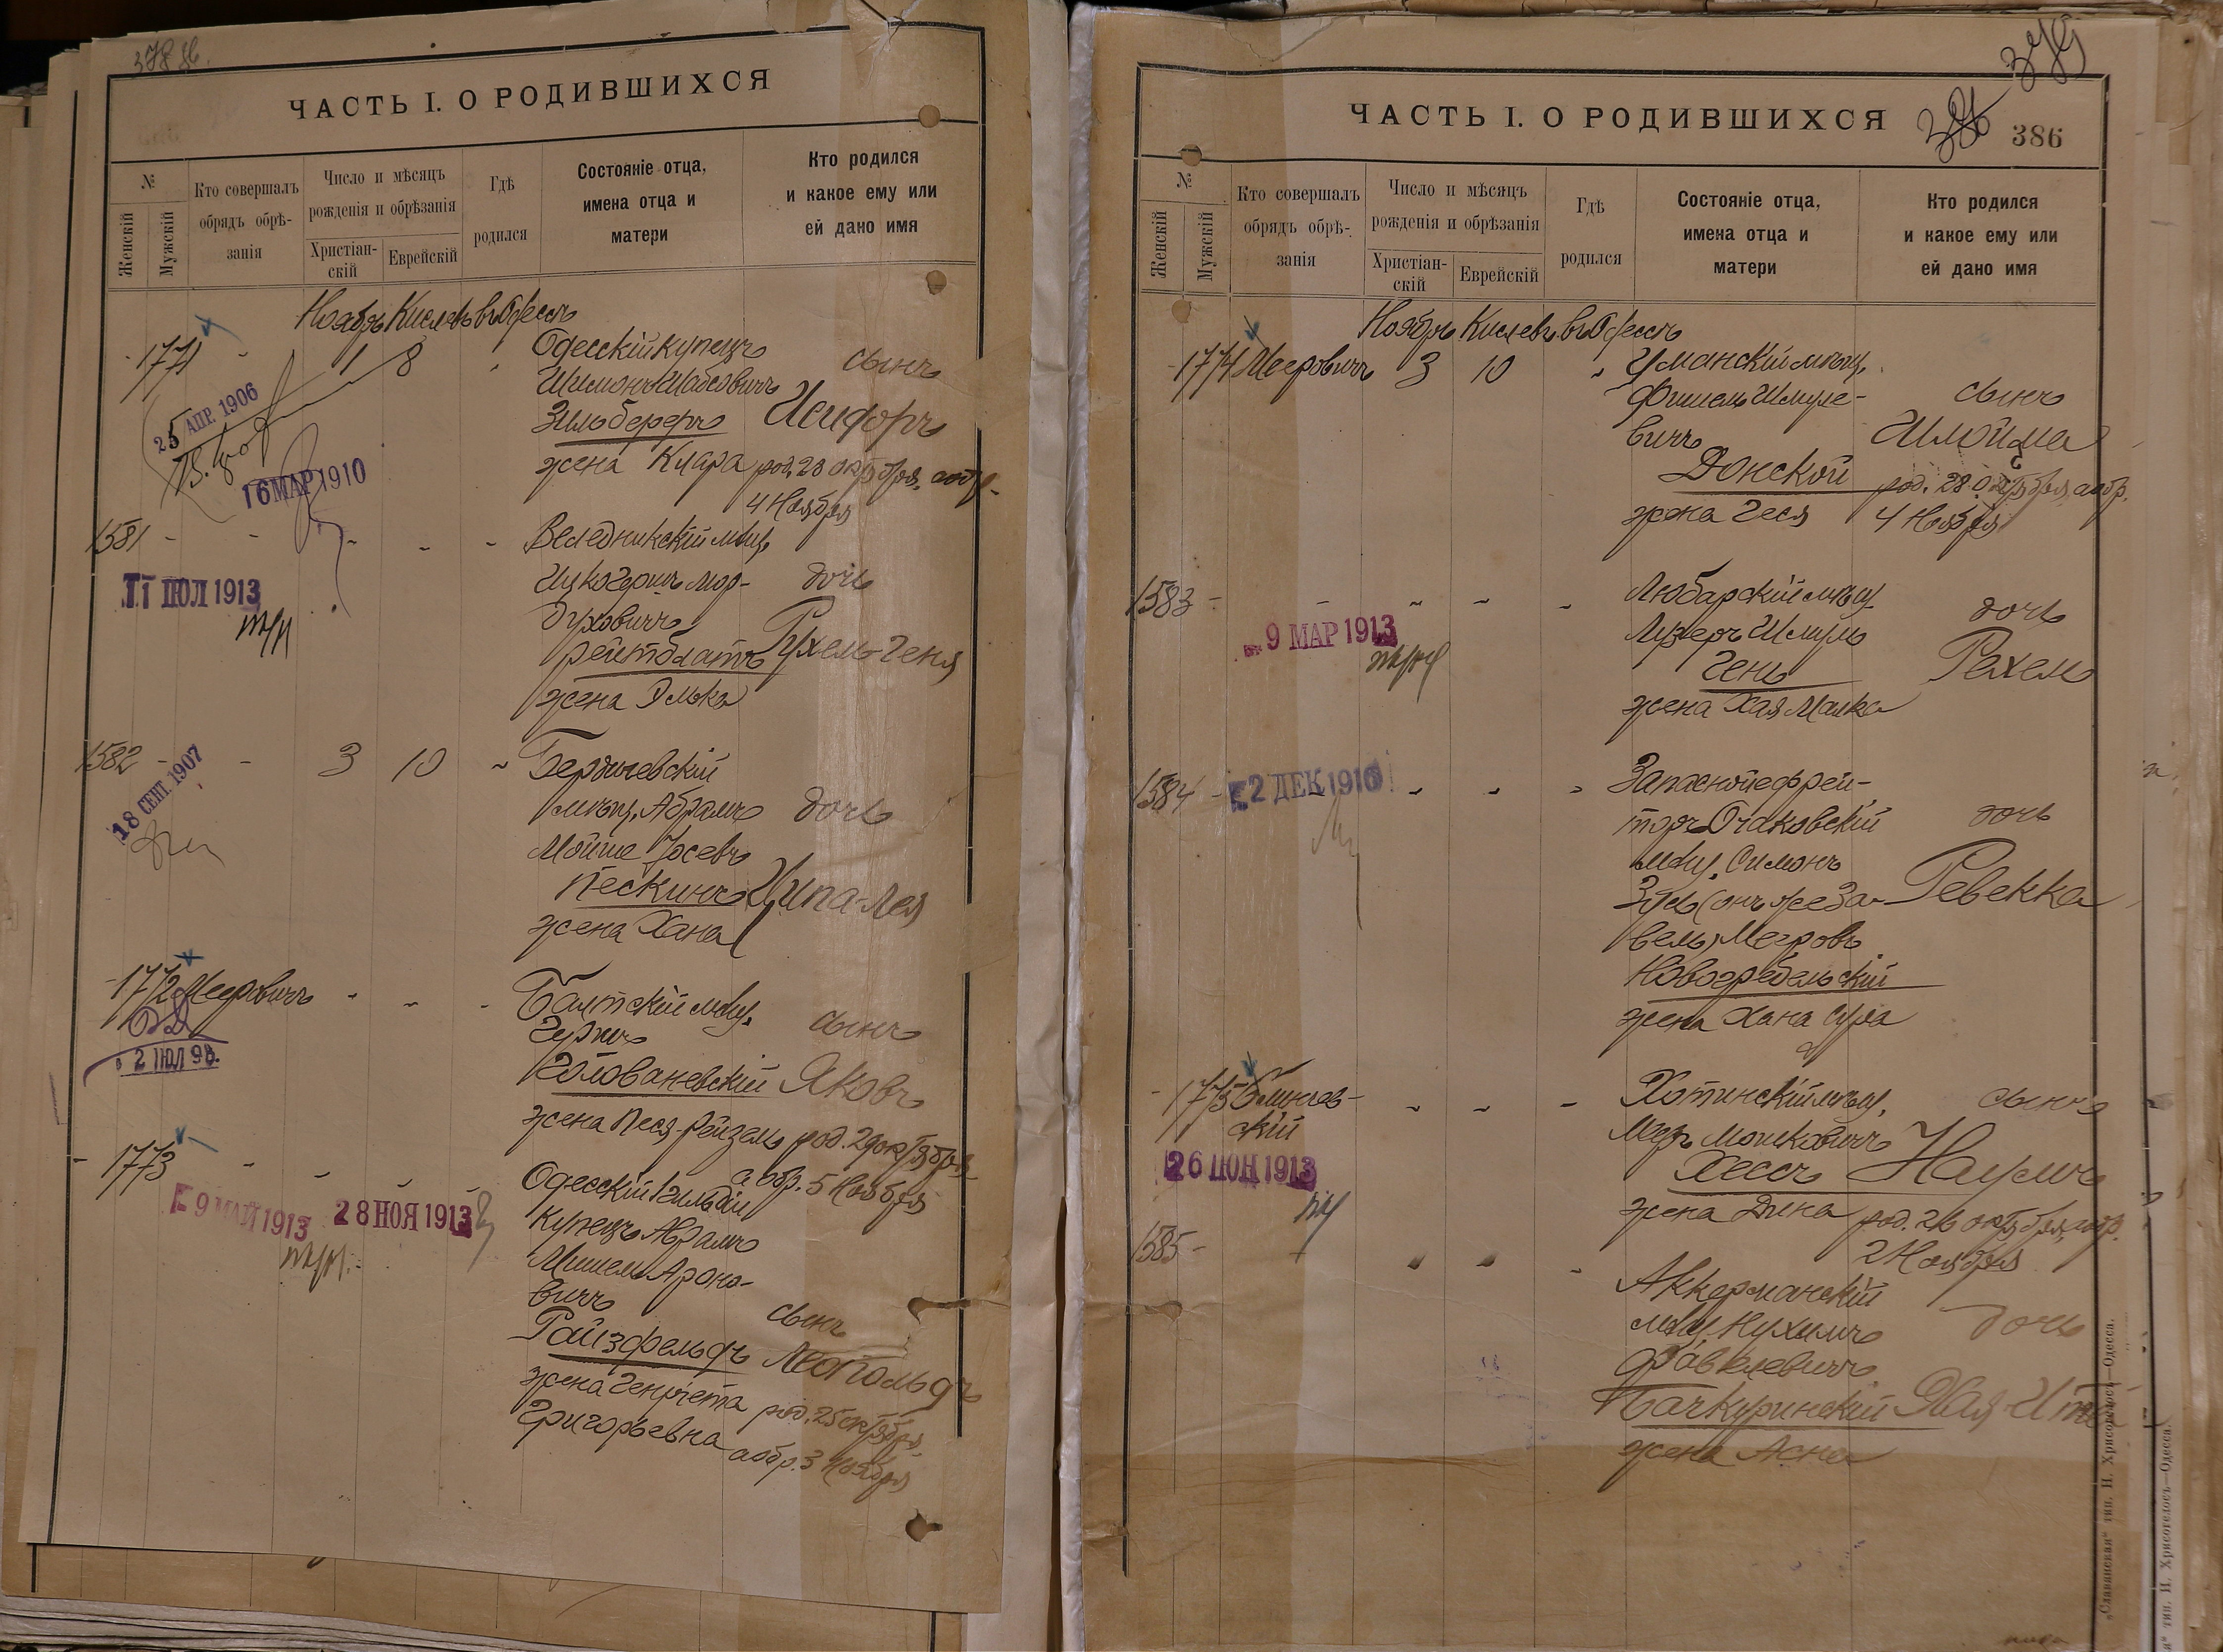 ЧАСТЬ I. О РОДИВШИХСЯ
№
Женскій
Мужскій
Кто совершалъ
обрядъ обрѣ-
занія
Число и мѣсяцъ
рожденія и обрѣзанія
Христіан-
скій
Еврейскій
Гдѣ
родился
Состояніе отца,
имена отца и
матери
Кто родился
и какое ему или
ей дано имя
Ноябрь Кислевъ въ Одессѣ
1771 - 1 8 Одесскій купецъ
Шимонъ Шабсовичъ сынъ
Зильбереръ Исидоръ
жена Клара род. 28 октября, а обр.
4 Ноября
25 АПР. 1906
16 МАР 1910
1581 - - - - - Веледникскій мѣщ.
Ицко Гершъ Мор- дочь
духовичъ
Рейтблатъ Рухель-Геня
жена Элька
11 ІЮЛ 1913
1582 - - 3 10 - Бердичевскій
мѣщ. Абрамъ дочь
Мойше Іосевъ
Пескинъ Ципа-Лея
жена Хана
18 СЕНТ. 1907
1772 Мееровичъ - - - Балтскій мѣщ.
Гершъ сынъ
Голованевскій Яковъ
жена Песя-Рейзель род. 29 октября
а обр. 5 Ноября
2 ІЮЛ 98.
1773 - - Одесскій 1 гильдіи
купецъ Абрамъ
Мишель Ароно-
вичъ сынъ
Райзфельдъ Леопольдъ
жена Генріета род. 25 октября,
Григорьевна а обр. 3 Ноября
9 МАЙ 1913 28 НОЯ 1913
ЧАСТЬ I. О РОДИВШИХСЯ
379
386
№
Женскій
Мужскій
Кто совершалъ
обрядъ обрѣ-
занія
Число и мѣсяцъ
рожденія и обрѣзанія
Христіан-
скій
Еврейскій
Гдѣ
родился
Состояніе отца,
имена отца и
матери
Кто родился
и какое ему или
ей дано имя
Ноябрь Кислевъ въ Одессѣ
1774 Мееровичъ 3 10 - Уманскій мѣщ.
Фишель Шмуле- сынъ
вичъ Шлойма
Донской род. 28 Октября, а обр.
жена Геся 4 Ноября
1583 - - - - - Любарскій мѣщ.
Лузеръ Шмуль дочь
Гень Рехель
жена Хая Малка
9 МАР 1913
1584 - - - - Запасной ефрей-
торъ Очаковскій дочь
мѣщ. Симонъ
Зусь (онъ же За- Ревекка
вель) Мееровъ
Новогребельскій
жена Хана Сура
2 ДЕК 1910
1775 - - - Хотинскій мѣщ. сынъ
Мееръ Мошковичъ
Хессъ Наумъ
жена Дина род. 26 октября, а обр.
2 Ноября
26 ІЮН 1913
1585 - - - - Аккерманскій
мѣщ. Нухимъ дочь
жена Асна
„Славянская“ тип. Н. Хрисогелосъ—Одесса.
тип. Н. Хрисогелосъ—Одесса.